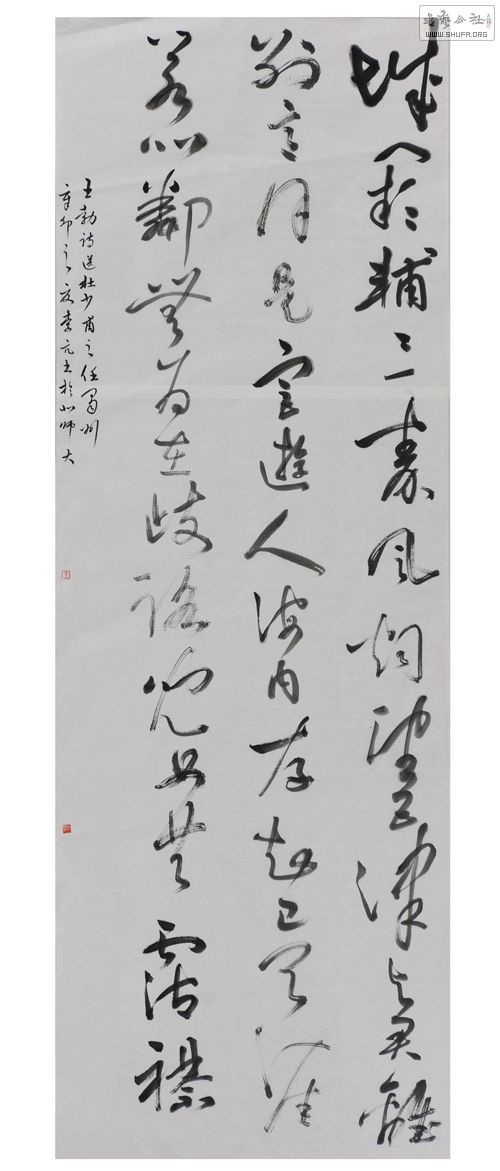 城闕輔三秦風烟望五津与君離
别意同是宦遊人海内存知己天涯
若比鄰無為在歧路兒女共霑襟
王勃詩送杜少甫之任蜀州
辛卯之夏李书於北师大
书艺公社
WWW.SHUFA.ORG